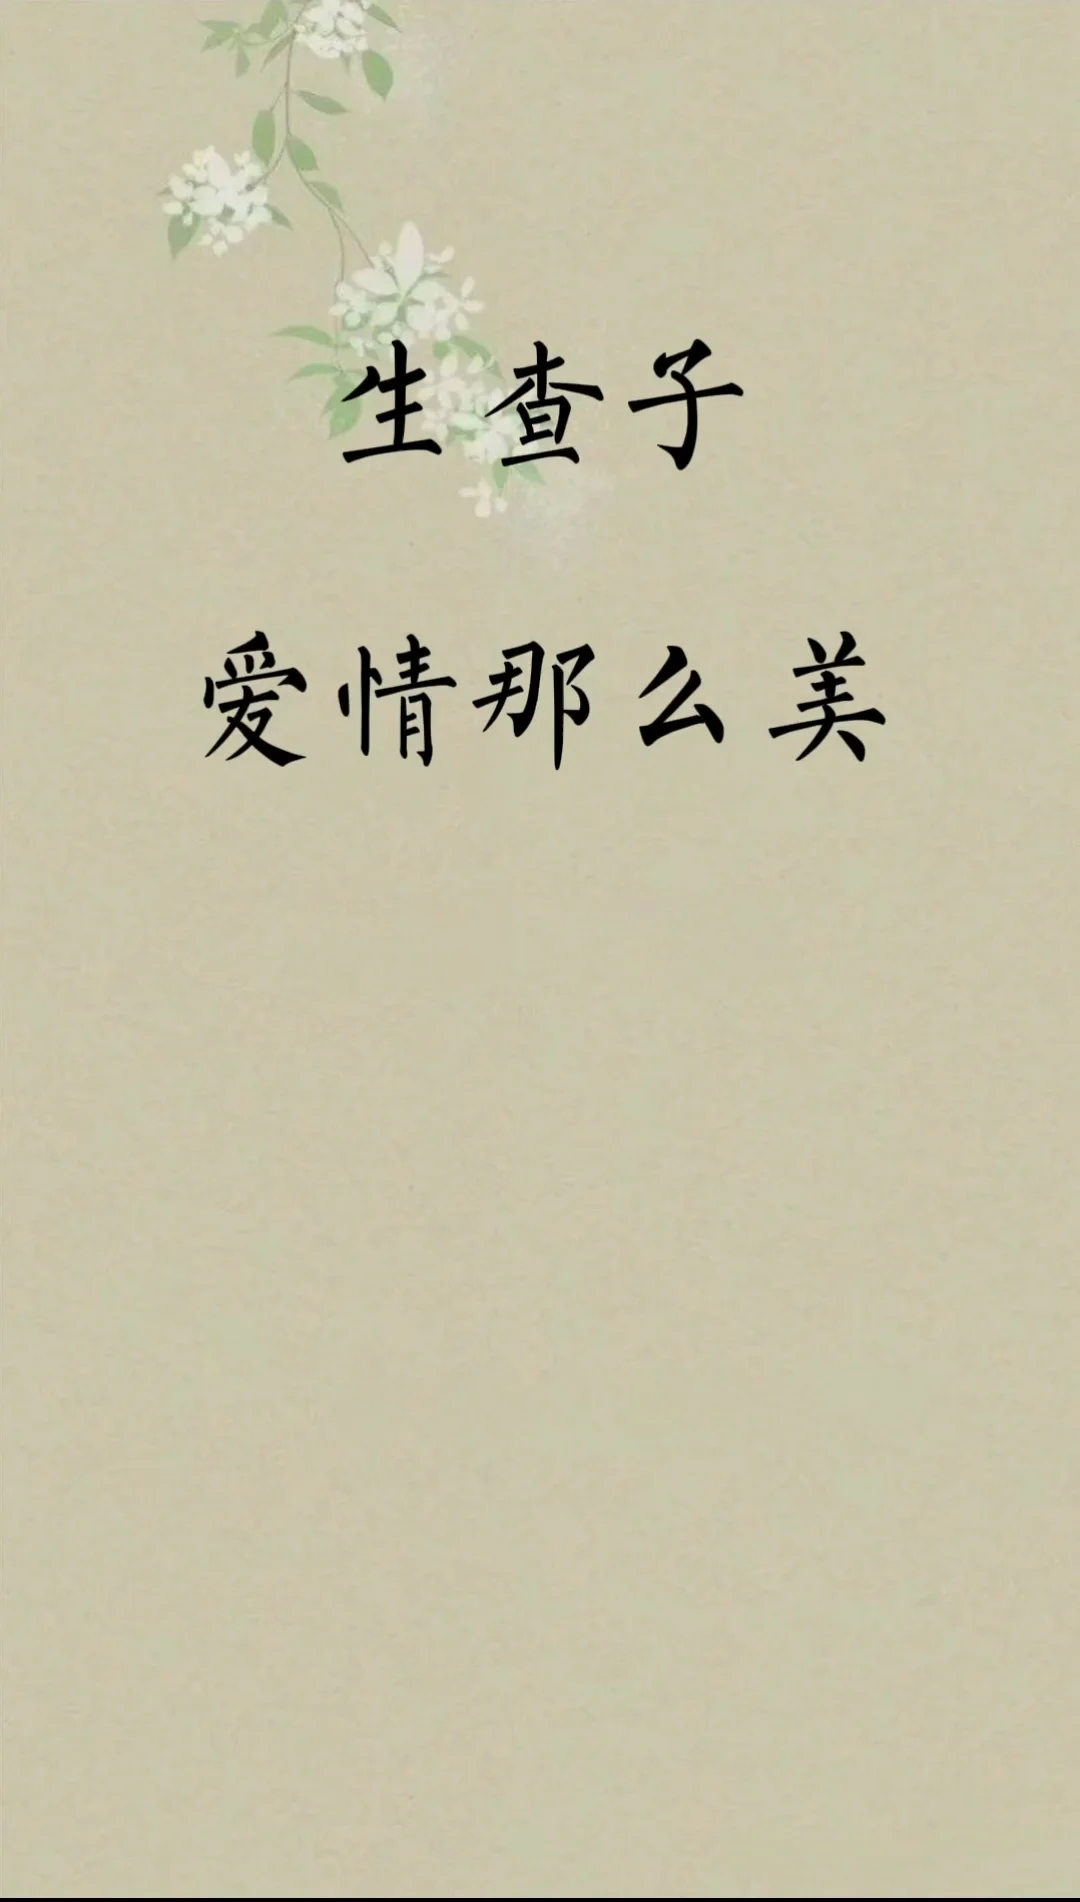 生查子
爱情那么美